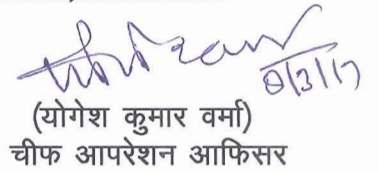 8/3/17
(योगेश कुमार वर्मा)
चीफ आपरेशन आफिसर